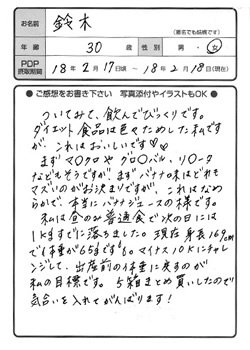 お名前
鈴木
(匿名でも結構です)
年齢
30歳
性別
男・女
PDP
摂取期間
18年2月17日頃 ～ 18年2月18日(現在)
●ご感想をお書き下さい 写真添付やイラストもOK●
ついてみて、飲んでびっくりです。
ダイエット食品は色々ためした私です
が、これはおいしいです♡♡
まずマ○クロやグロ○バル、リ○ータ
などもそうですが、まずバナナ味はどれも
マズいのがお決まりですが、これはなめ
らかで、本当にバナナジュースの様です。
私は昼のみ普通食で次の日には
1kgすでに落ちました。現在 身長169cm
で体重が65kgです。マイナス10Kにチャレ
ンジして、出産前の体重に戻るのが
私の目標です。5箱まとめ買いしたので
気合いを入れてがんばります!